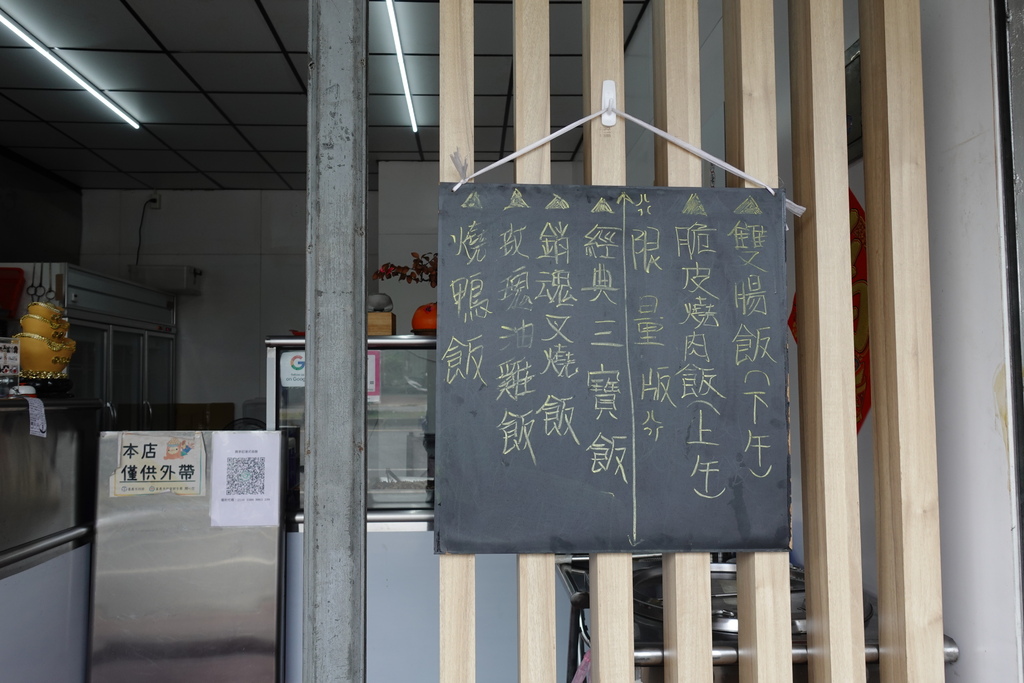 雙腸飯(下午)
脆皮燒肉飯(上午)
限量版
經典三寶飯
銷魂叉燒飯
玫瑰油雞飯
燒鴨飯
本店
僅供外帶
G